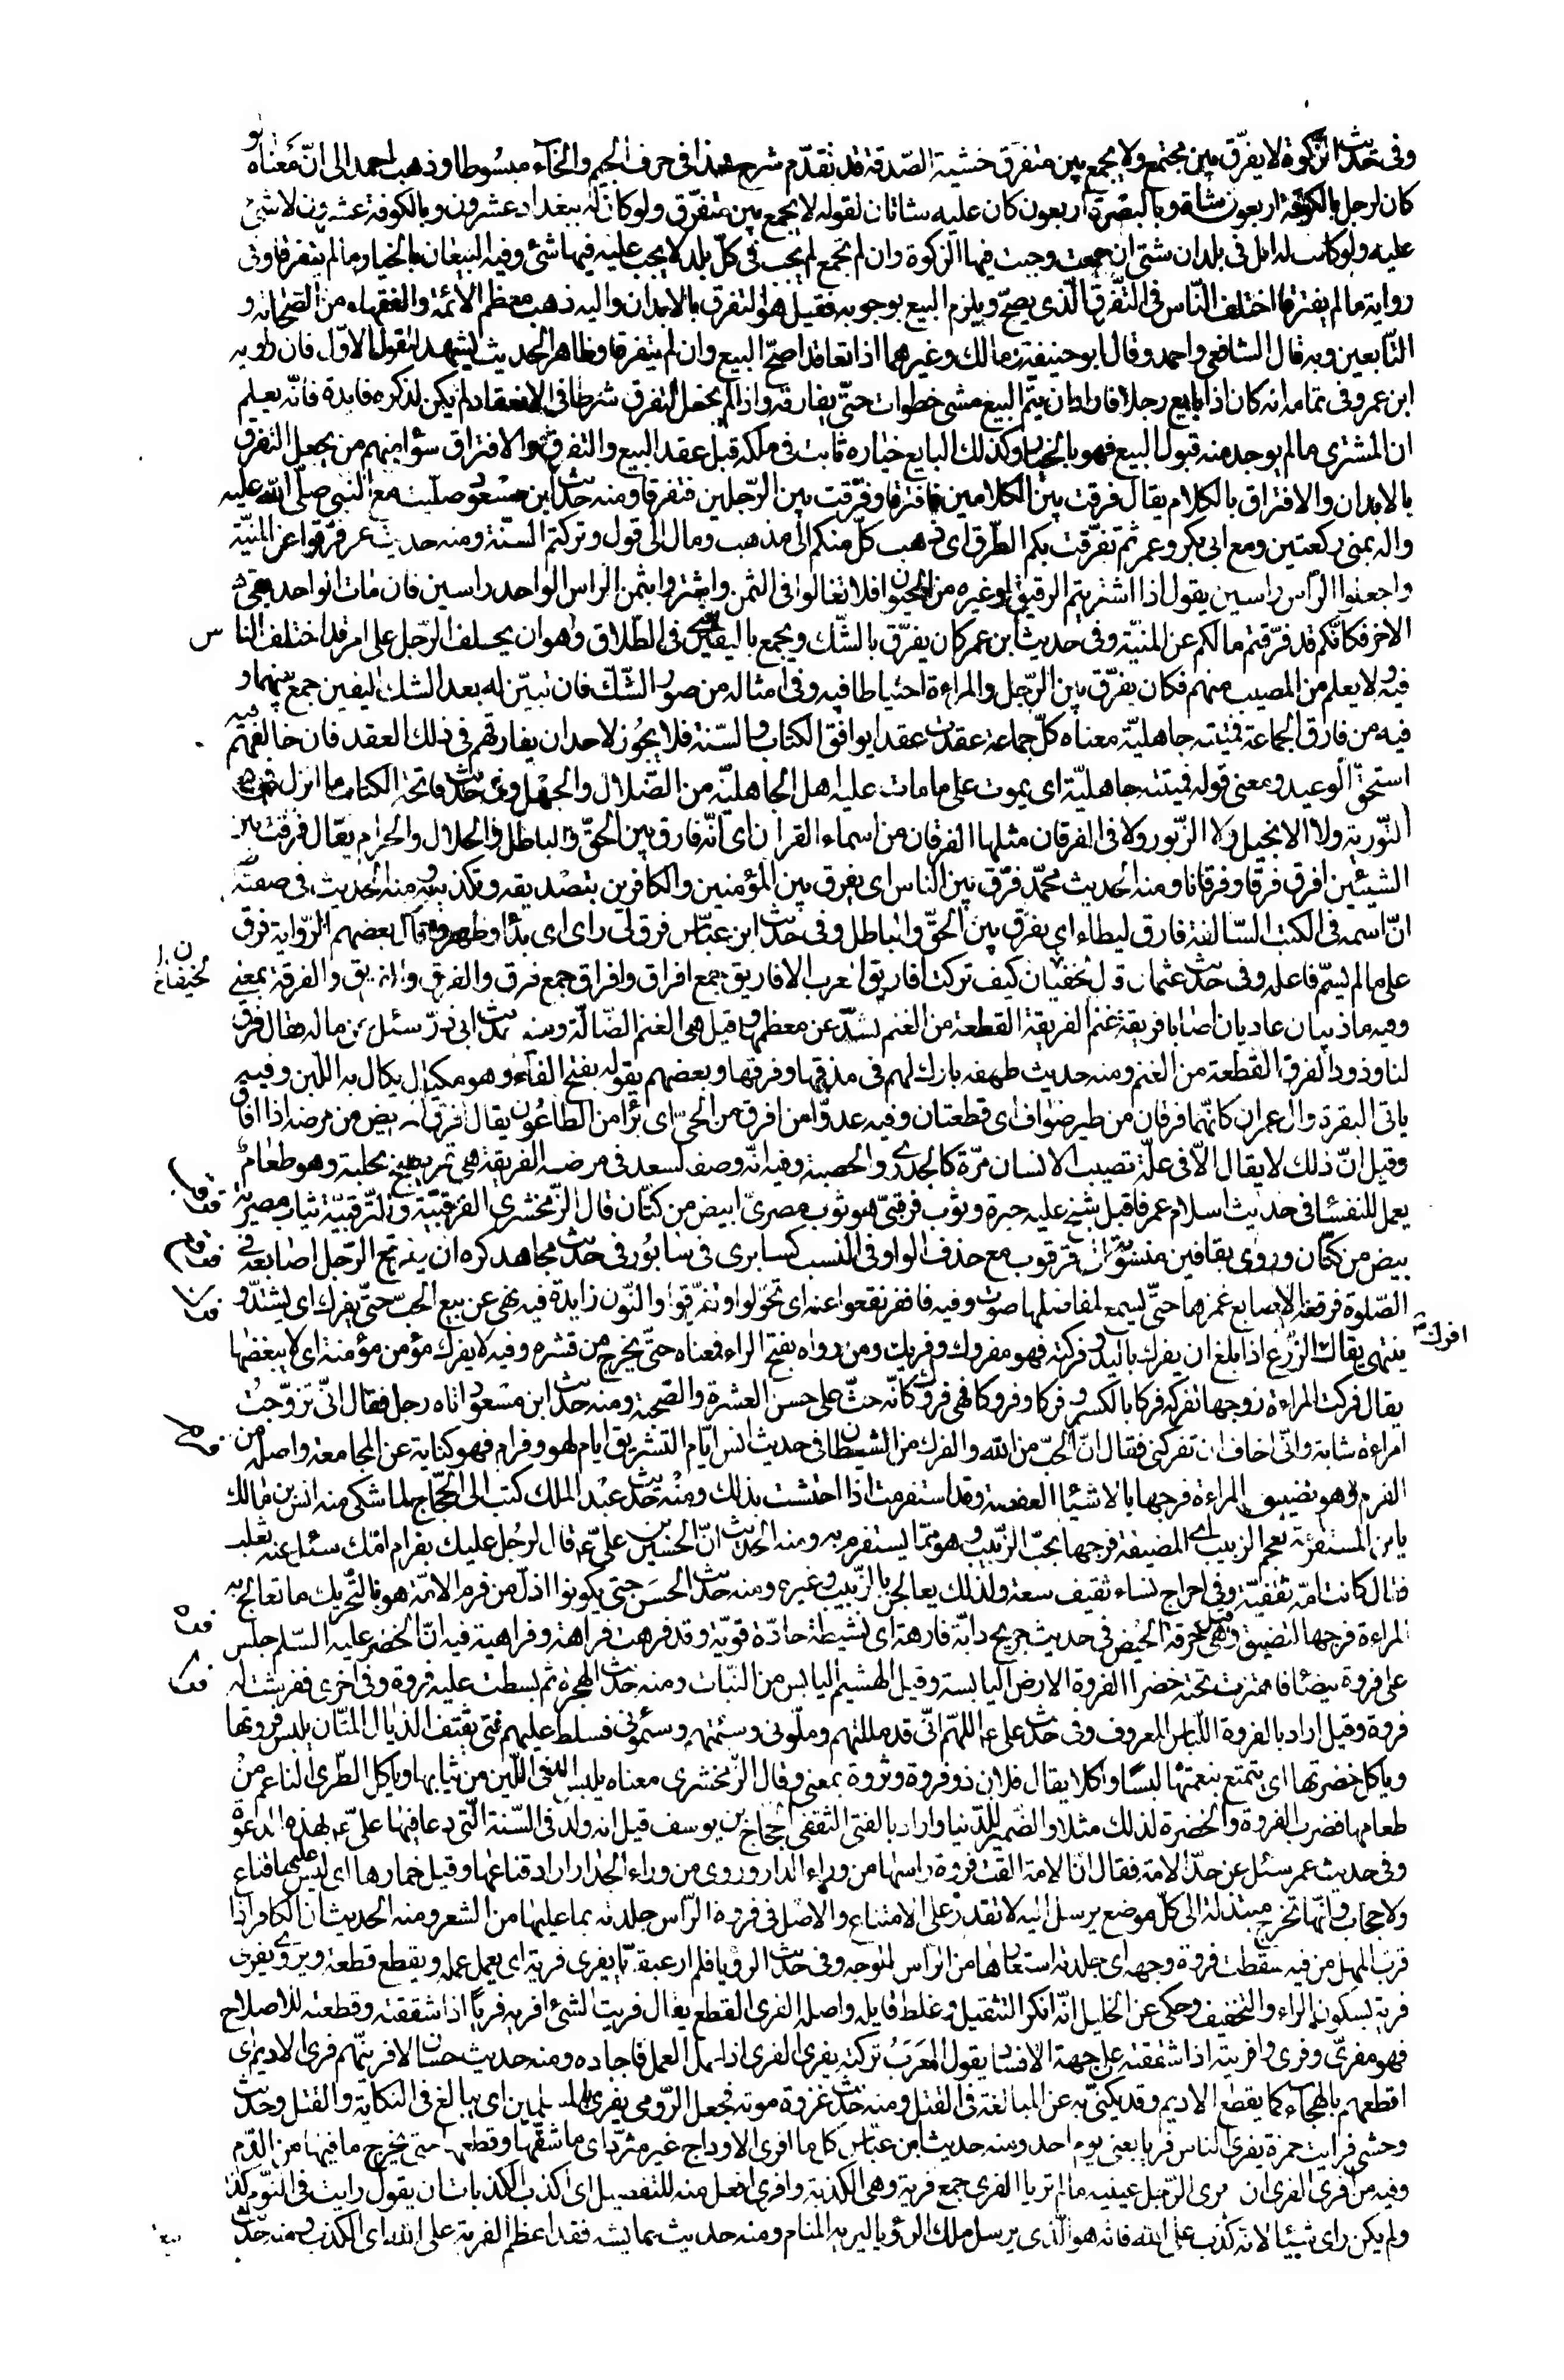 وفى حديث الزكوة لا يفرّق بين مجتمع ولا يجمع بين متفرق خشية الصّدقة قد تقدّم شرح هذا فى حرف الجيم والخآء مبسُوطا وذهب احمد الى انّ مَعناه لو
كان لرجل بالكوفة اربعون شاة وبالبصرة اربعون كان عليه شاتان لقوله لا يجمع بين متفرّق ولو كان له ببغداد عشرون وبالكوفة عشرون لا شئ
عليه ولو كانت له ابل فى بلدان شتى ان جمعت وجبت فيها الزكوة وان لم تجمع لم يجب فى كلّ بلد لا يجب عليه فيها شئ وفيه البيعان بالخيار ما لم يتفرقا وفى
رواية ما لم يفترقا اختلف النّاس فى التّفرق الّذى يصحّ ويلزم البيع بوجوبه فقيل هو التفرق بالابدان واليه ذهب معظم الائمة والفقهاء من الصّحابة و
التّابعين وبه قال الشافعى واحمد وقال ابو حنيفة ومالك وغيرهما اذا تعاقدا صحّ البيع وان لم يتفرقا وظاهر الحديث يشهد للقول الاوّل فان راويه
ابن عمر وفى تمامه انه كان اذا بايع رجلا فاراد ان يتمّ البيع مشى خطوات حتّى يفارقه واذا لم يجعل التفرق شرطا فى الانعقاد لم يكن لذكره فايدة فانّه يعلم
ان المشترى ما لم يوجد منه قبول البيع فهو بالخيار وكذلك البايع خياره ثابت فى ملكه قبل عقد البيع والتفرق والافتراق سوآء منهم من يجعل التفرق
بالابدان والافتراق بالكلام يقال فرقت بين الكلامين فافترقا وفرّقت بين الرّجلين فتفرقا ومنه حديث ابن مسعود صلّيت مع النبى صلّى الله عليه
واله بمنى ركعتين ومع ابى بكر وعمر ثم تفرّقت بكم الطّرق اى ذهب كلّ منكم الى مذهب ومال الى قول وتركتم السّنة ومنه حديث عمر فرّقوا عن المنيّة
واجعلوا الرّأس راسين يقول اذا اشتريتم الرقيق او غيره من الحيوان فلا تغالوا فى الثمن واشتروا بثمن الراس الواحد راسين فان مات الواحد بقى
الاخر فكانّكم قد فرّقتم مالكم عن المنيّة وفى حديث ابن عمر كان يفرّق بالشّك ويجمع باليقين فى الطّلاق وهو ان يحلف الرّجل على امر قد اختلف الناس
فيه ولا يعلم من المصيب منهم فكان يفرّق بين الرّجل والمراءة احتياطا فيه وفى امثاله من صور الشّكّ فان تبيّن له بعد الشك اليقين جمع بينهما و
فيه من فارق الجماعة فميتته جاهليّة معناه كلّ جماعة عقدت عقدا يوافق الكتاب والسّنة فلا يجُوز لاحد ان يفارقهم فى ذلك العقد فان خالفهم فيه
استحقّ الوعيد ومعنى قوله فميتته جاهليّة اى يموت على ما مات عليه اهل الجاهليّة من الضّلال والجهل وفى حديث فاتحة الكتاب ما انزل فى
التّورية ولا الانجيل ولا الزّبور ولا فى الفرقان مثلها الفرقان من اسماء القران اى انّه فارق بين الحقّ والباطل والحلال والحرام يقال فرقت بين
الشيئين افرق فرقا وفرقانا ومنه الحديث محمّد فرّق بين الناس اى يفرق بين المؤمنين والكافرين بتصديقه وتكذيبه ومنه الحديث فى صفته
انّ اسمه فى الكتب السّالفة فارق ليطاء اى يفرق بين الحقّ والباطل وفى حديث ابن عبّاس فرق لى راى اى بدا وظهر وقال بعضهم الرّواية فرق
على ما لم يسمّ فاعله وفى حديث عثمان قال لخفيان كيف تركت افاريق العرب الافاريق جمع افراق وافراق جمع فرق والفرق والفريق والفرقة بمعنى
وفيه ما ذيبان عاديان اصابا فريقة غنم الفريقة القطعة من الغنم تشذّ عن معظمها وقيل هى الغنم الضّالّة ومنه حديث ابى ذرّ سئل عن ماله فقال فرق
لنا وذود الفرق القطعة من الغنم ومنه حديث طهفه بارك لهم فى مذقها وفرقها وبعضهم يقوله بفتح الفآء وهو مكيال يكال به اللّبن وفيه
ياتى البقرة وال عمران كانّهما فرقان من طير صواف اى قطعتان وفيه عدوّا من افرق من الحىّ اى برا من الطّاعُون يقال افرق المريض من مرضه اذا افاق
وقيل انّ ذلك لا يقال الّا فى علّة تصيب الانسان مرّة كالجدرى والحصبة وفيه انّه وصف لسعد فى مرضه الفريقة هى تمر يطبخ بحلبة وهو طعام
يعمل للنفسآء فى حديث اسلام عمر فاقبل شيخ عليه حبرة وثوب فرقبىّ هو ثوب مصرىّ ابيض من كتّان قال الزّمخشرى الفرقبيّة والثرقبيّة ثياب مصرية
بيض من كتّان وروى بقافين منسوب الى قرقوب مع حذف الواو فى النسب كسابرى فى سابُور فى حديث مجاهد كره ان يفرقع الرّجل اصابعه فى
الصّلوة فرقعة الاصابع غمزها حتّى يسمع لمفاصلها صوت وفيه فافرنقعوا عنه اى تحوّلوا وتفرّقوا والنّون زايدة فيه نهى عن بيع الحبّ حتّى يفرك اى يشتدّ و
ينتهى يقال افرك الزّرع اذا بلغ ان يفرك باليد وفركته فهو مفروك وفريك ومن رواه بفتح الراء فمعناه حتّى يخرج من قشره وفيه لا يفرك مؤمن مؤمنة اى لا يبغضها
يقال فركت المراءة زوجها تفركه فركا بالكسر وفركا وفروكا فهى فروك كانّه حثّ على حسن العشرة والصّحبة ومنه حديث ابن مسعود اتاه رجل فقال انّى تزوّجتُ
امراءة شابة وانّى اخاف ان تفركنى فقال انّ الحبّ من الله والفرك من الشيطان فى حديث انس ايّام التشريق ايام لهو وفرام فهو كناية عن المجامعة واصله من
الفرم وهو تضييق المراءة فرجها بالاشيآء العفصة وقد استفرمت اذا احتشت بذلك ومنه حديث عبد الملك كتب الى الحجّاج لما شكى منه انس بن مالك
يا بن المستفرمة بعجم الزبيب اى المضيقة فرجها بحبّ الزّبيب وهو ممّا يستفرم به ومنه الحديث انّ الحسين بن علىّ ع قال لرجُل عليك بفرام امّك سئل عنه ثعلب
فقال كانت امّه ثقفيّة وفى احراج نساء ثقيف سعة ولذلك يعالجن بالزّبيب وغيره ومنه حديث الحسن حتى يكونوا اذلّ من فرم الامة هو بالتّحريك ما تعالج به
المراءة فرجها لتضيق وقيل هى خرقة الحيض فى حديث جريح دابّة فارهة اى نشيطة حادّة قويّة وقد فرهت فراهة وفراهية فيه انّ الخضر عليه السّلم جلس
على فروة بيضآء فاهتزت تحته خضرا الفروة الارض اليابسة وقيل الهشيم اليابس من النّبات ومنه حديث الهجرة ثم بسطت عليه فروة وفى اخرى ففرشت له
فروة وقيل اراد بالفروة اللّباس المعروف وفى حديث على ع اللهمّ انّى قد مللتهم وملّونى وسئمتهم وسئمونى فسلط عليهم فتى ثقيف الذيال المنّان يلبس فروتها
وياكل خضرتها اى يتمتع بنعمتها لبسا واكلا يقال فلان ذو فروة وثروة بمعنى وقال الزّمخشرى معناه يلبس الدفى اللّين من ثيابها وياكل الطّرى الناعم من
طعامها فضرب الفروة والخضرة لذلك مثلا والضّمير للدّنيا واراد بالفتى الثقفى الحجّاج بن يوسف قيل انه ولد فى السّنة الّتى دعا فيها علىّ ع بهذه الدعوة
وفى حديث عمر سئل عن حدّ الامة فقال انّ الامة القت فروة راسها من وراء الدار وروى من وراء الجدار اراد قناعها وقيل خمارها اى ليس عليها قناع
ولا حجاب وانّها تخرج مبتذلة الى كلّ موضع يرسل اليه لا تقدر على الامتناع والاصل فى فروة الرّاس جلدته بما عليها من الشعر ومنه الحديث انّ الكافر اذا
قرب المهل من فيه سقطت فروة وجهه اى جلدته استعارها من الراس للوجه وفى حديث الرؤيا فلم ار عبقريّا يفرى فريه اى يعمل عمله ويقطع قطعه ويروى يفرى
فريه بسكون الراء والتخفيف وحكى عن الخليل انّه انكر التثقيل وغلط قايله واصل الفرى القطع يقال فريت الشئ افريه فريا اذا شققته وقطعته للاصلاح
فهو مفرىّ وفرى وافريته اذا شققته على جهة الافساد يقول العَرَبُ تركته يفرى الفرى اذا عمل العمل فاجاده ومنه حديث حسان لافرينّهم فرى الاديم اى
اقطعهم بالهجآء كما يقطع الاديم وقد يكنى به عن المبالغة فى القتل ومنه حديث غزوة موته فجعل الرّومى يفرى بالمسلمين اى يبالغ فى النكاية والقتل وحديث
وحشى فرايت حمزة يفرى الناس فريا يعنى يوم احد ومنه حديث ابن عبّاس كل ما افرى الاوداج غير مثرّد اى ما شقّها وقطعها حتى يخرج ما فيها من الدّم
وفيه من افرى الفرى ان يرى الرّجل عينيه ما لم تريا الفرى جمع فرية وهى الكذبة وافرى افعل منه للتفضيل اى اكذب الكذبات ان يقول رايت فى النّوم كذا
ولم يكن راى شيئا لانه كذب على الله فانه هو الّذى يرسل ملك الرؤيا ليريه المنام ومنه حديث عايشه فقد اعظم الفرية على الله اى الكذب ومنه حديث